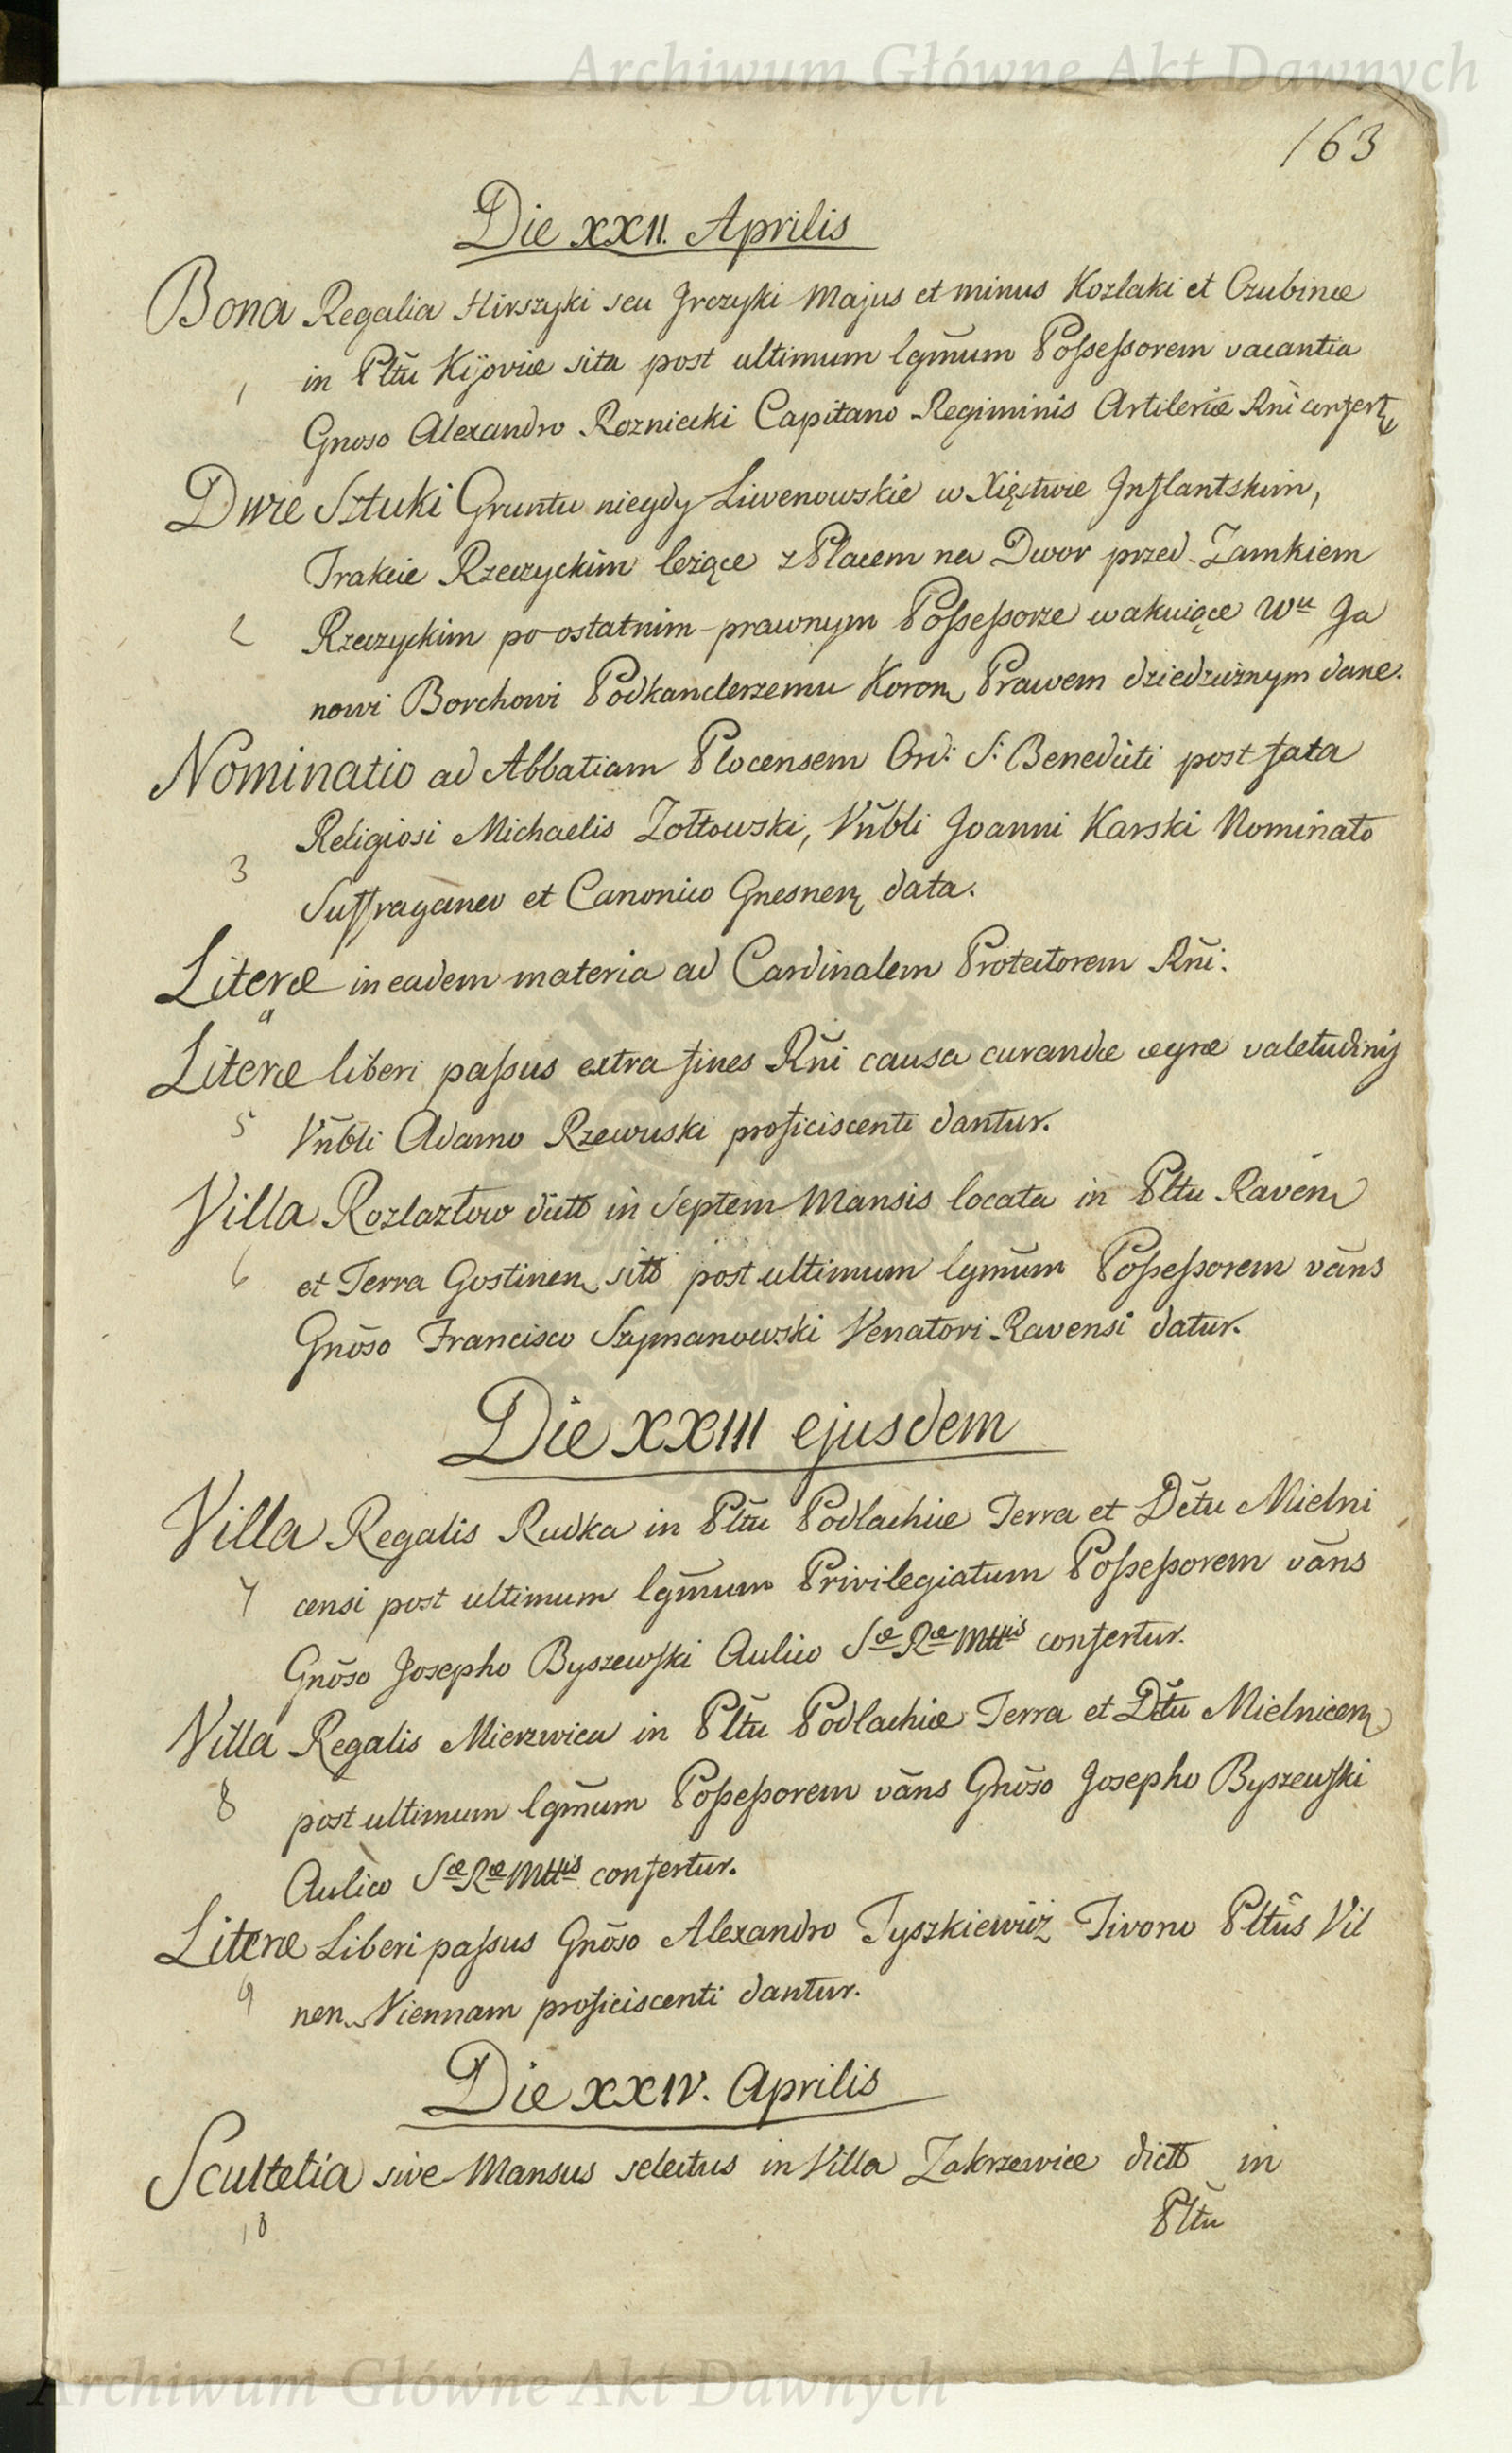 Archiwum Główne Akt Dawnych
163
Die XXII. Aprilis
Bona Regalia Hirszyki seu Jrczyki Majus et minus Kozlaki et Czubinæ
in Pltũ Kijoviæ sita post ultimum lgm̃um Possessorem vacantia
1
Gnoso Alexandro Rozniecki Capitano Regiminis Artileriæ Rñi confert
Dwie Sztuki Gruntu niegdy Liwenowskie w Xięstwie Jnflantskim,
Trakcie Rzeczyckim leżące z Placem na Dwor przed Zamkiem
2
Rzeczyckim po ostatnim prawnym Possessorze wakuiące Wu Ja
nowi Borchowi Podkanclerzemu Koron Prawem dziedzicznym dane.
Nominatio ad Abbatiam Plocensem Ord: S: Benedicti post fata
Religiosi Michaelis Zołtowski, Vñbli Joanni Karski Nominato
3
Suffraganeo et Canonico Gnesnen data.
Literæ in eadem materia ad Cardinalem Protectorem Rñi.
4
Literæ liberi passus extra fines Rñi causa curandæ ægræ valetudinis
5
Vñbli Adamo Rzewuski proficiscenti dantur.
Villa Rozlazłow dicta in Septem Mansis locata in Pltu Raven
6
et Terra Gostinen sita post ultimum lgm̃um Possessorem vãns
Gnõso Francisco Szymanowski Venatori Ravensi datur.
Die XXIII ejusdem
Villa Regalis Rudka in Pltũ Podlachiæ Terra et Dc̃tu Mielni
7
censi post ultimum lgm̃um Privilegiatum Possessorem vãns
Gnõso Josepho Byszewski Aulico Sæ Ræ Mttis confertur.
Villa Regalis Mierzwica in Pltũ Podlachiæ Terra et Dc̃tu Mielnicen
8
post ultimum lgm̃um Possessorem vãns Gnõso Josepho Byszewski
Aulico Sæ Ræ Mttis confertur.
Literæ Liberi passus Gnõso Alexandro Tyszkiewicz Tivono Pltũs Vil
9
nen Viennam proficiscenti dantur.
Die XXIV. Aprilis
Scultetia sive Mansus selectus in Villa Zakrzewice dicta in
10
Pltũ
Archiwum Główne Akt Dawnych